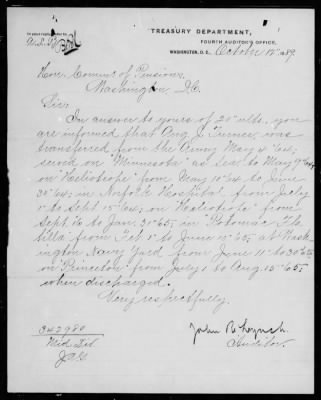 TREASURY DEPARTMENT,
FOURTH AUDITOR'S OFFICE,
WASHINGTON, D. C., October 1889.
Hon. Comm'r of Pensions,
Washington D.C.
Sir:
In answer to yours of 20" ulto., you
are informed that Aug. J. was
transferred from the Army May 4 '64;
served on "Minnesota" as Sea. to May 9"
on "Heliotrope" from May 10" 64 to June
30" 64; in Norfolk Hospital from July
1" to Sept. 15" 64; on "Heliotrope" from
Sept. 16 to Jan. 31" 65; in "Potomac Flo
tilla" from Feb 1" to June 10" 65; at Wash-
ington Navy Yard from June 11" to 30" 65
on "Princeton" from July 1 to Aug. 15" 65,
when discharged.
Very respectfully,
John R Lynch
Auditor.
342980
Mid. Div.